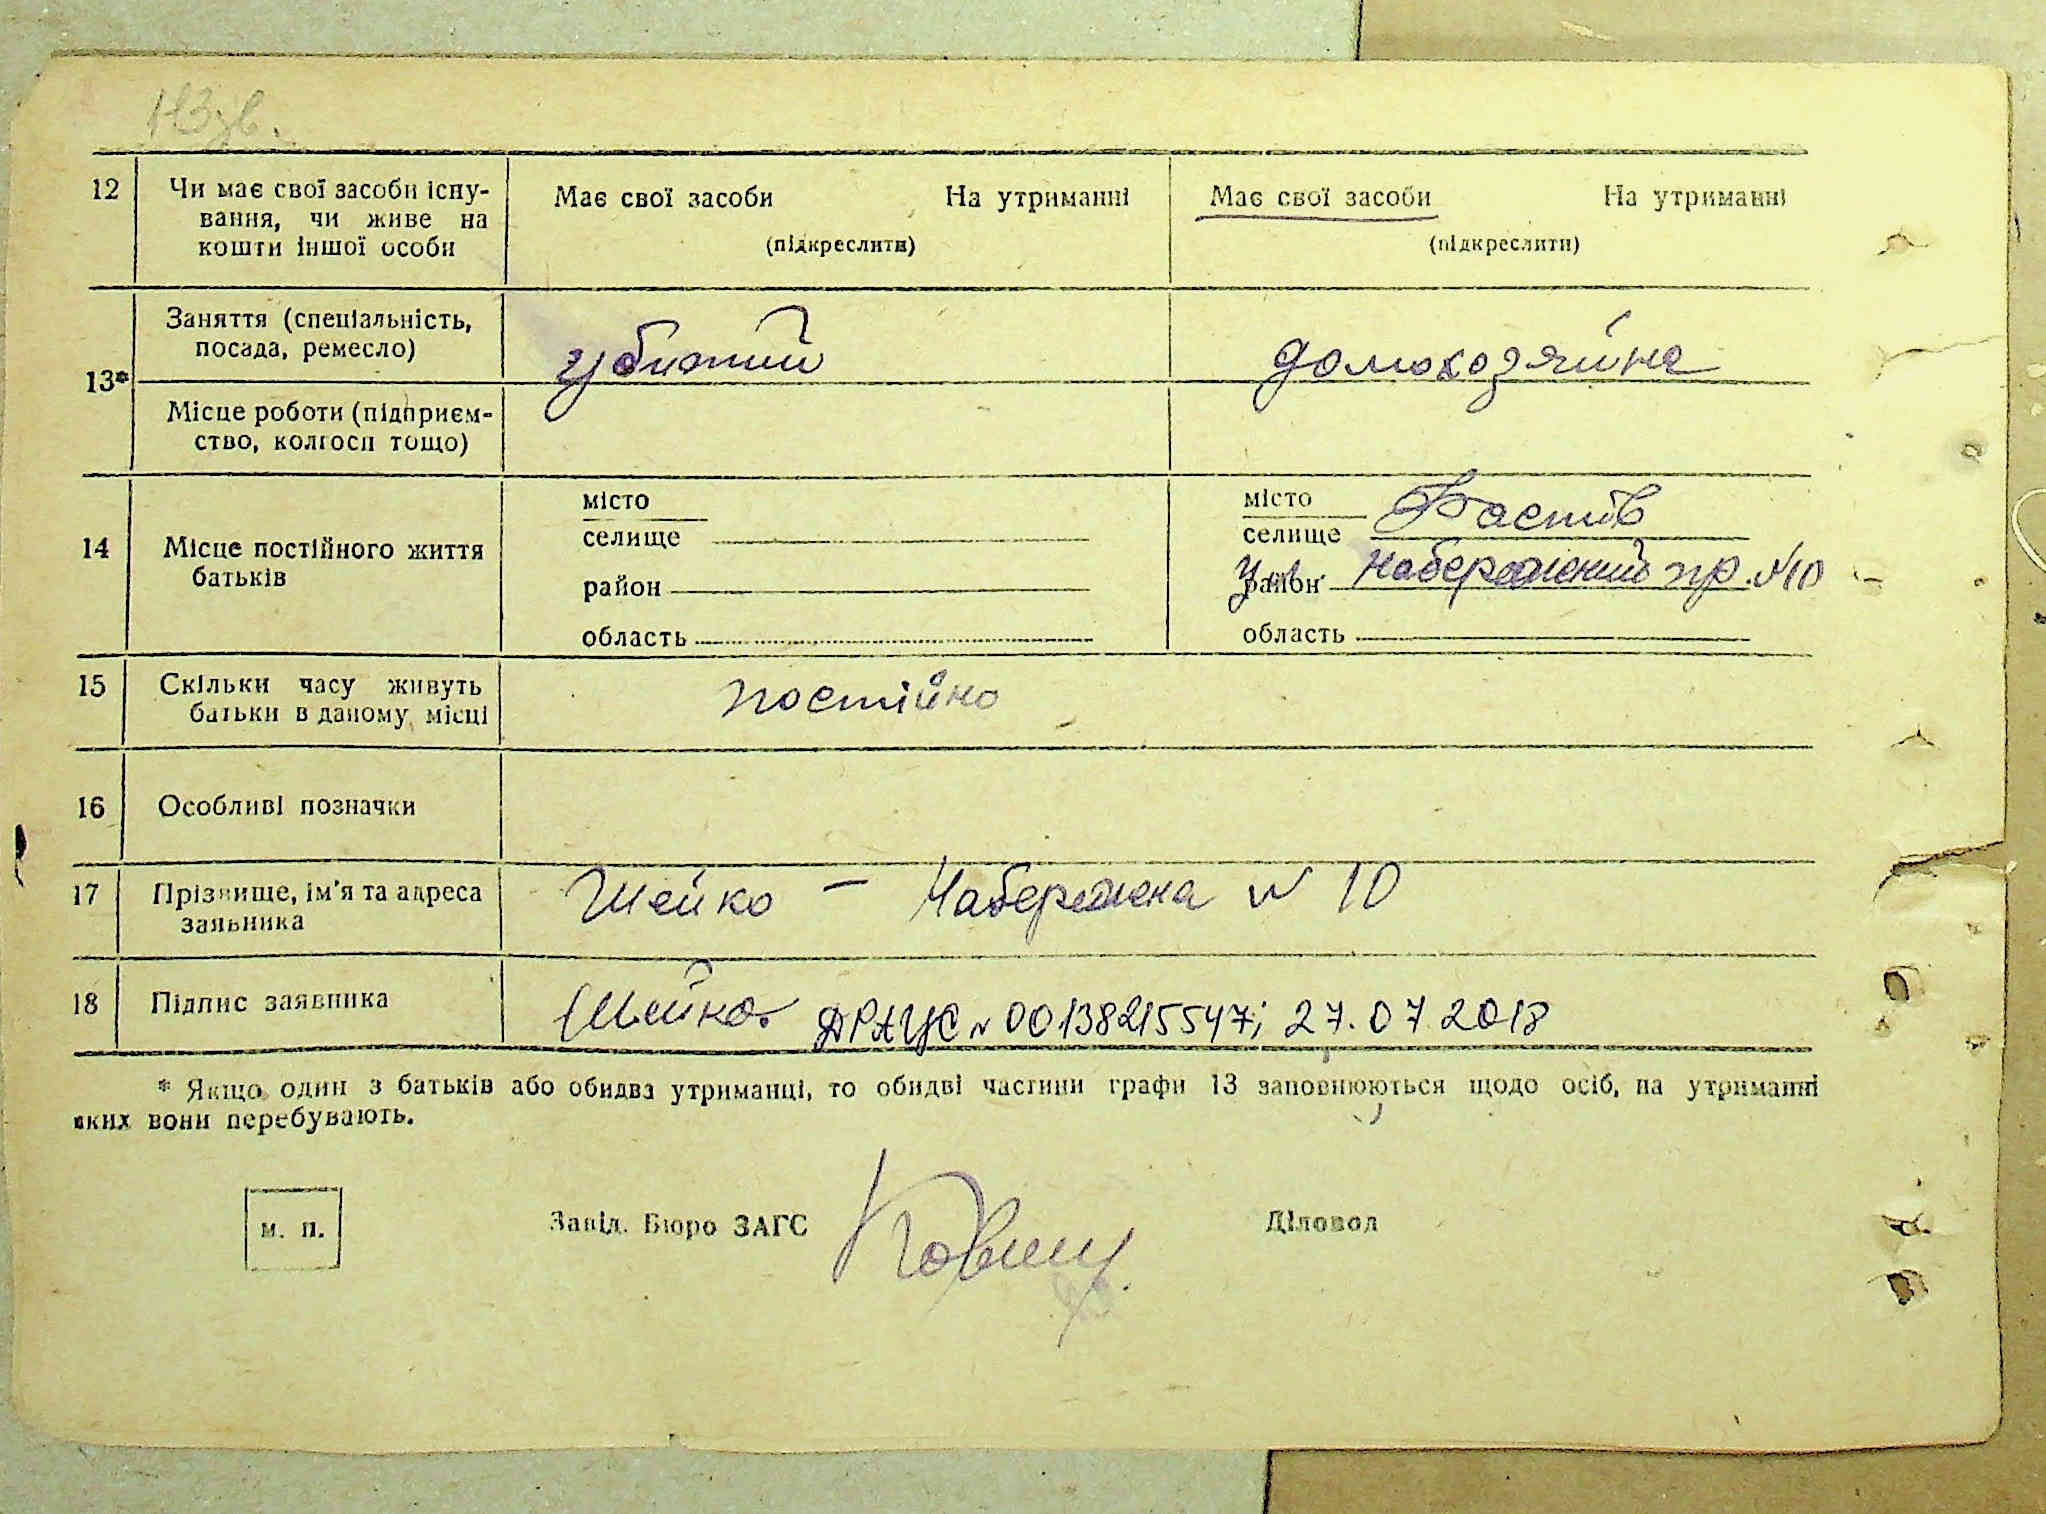 12 Чи має свої засоби існу- Має свої засоби На утриманні Має свої засоби На утриманні
вання, чи живе на
кошти іншої особи (підкреслити) (підкреслити)
Заняття (спеціальність,
посада, ремесло) убитий домохозяйка
13*
Місце роботи (підприєм-
ство, колгосп тощо)
місто місто Фастів
селище селище
14 Місце постійного життя
батьків
район район ул. Набережний пр. №10
область область
15 Скільки часу живуть постійно
батьки в даному місці
16 Особливі позначки
17 Прізвище, ім'я та адреса Шейко – Набережна № 10
заявника
18 Підпис заявника Шейко. ДРАЦС № 00138215547; 27.07.2018
* Якщо один з батьків або обидва утриманці, то обидві частини графи 13 заповнюються щодо осіб, на утриманні
яких вони перебувають.
м. п. Завід. Бюро ЗАГС Діловод